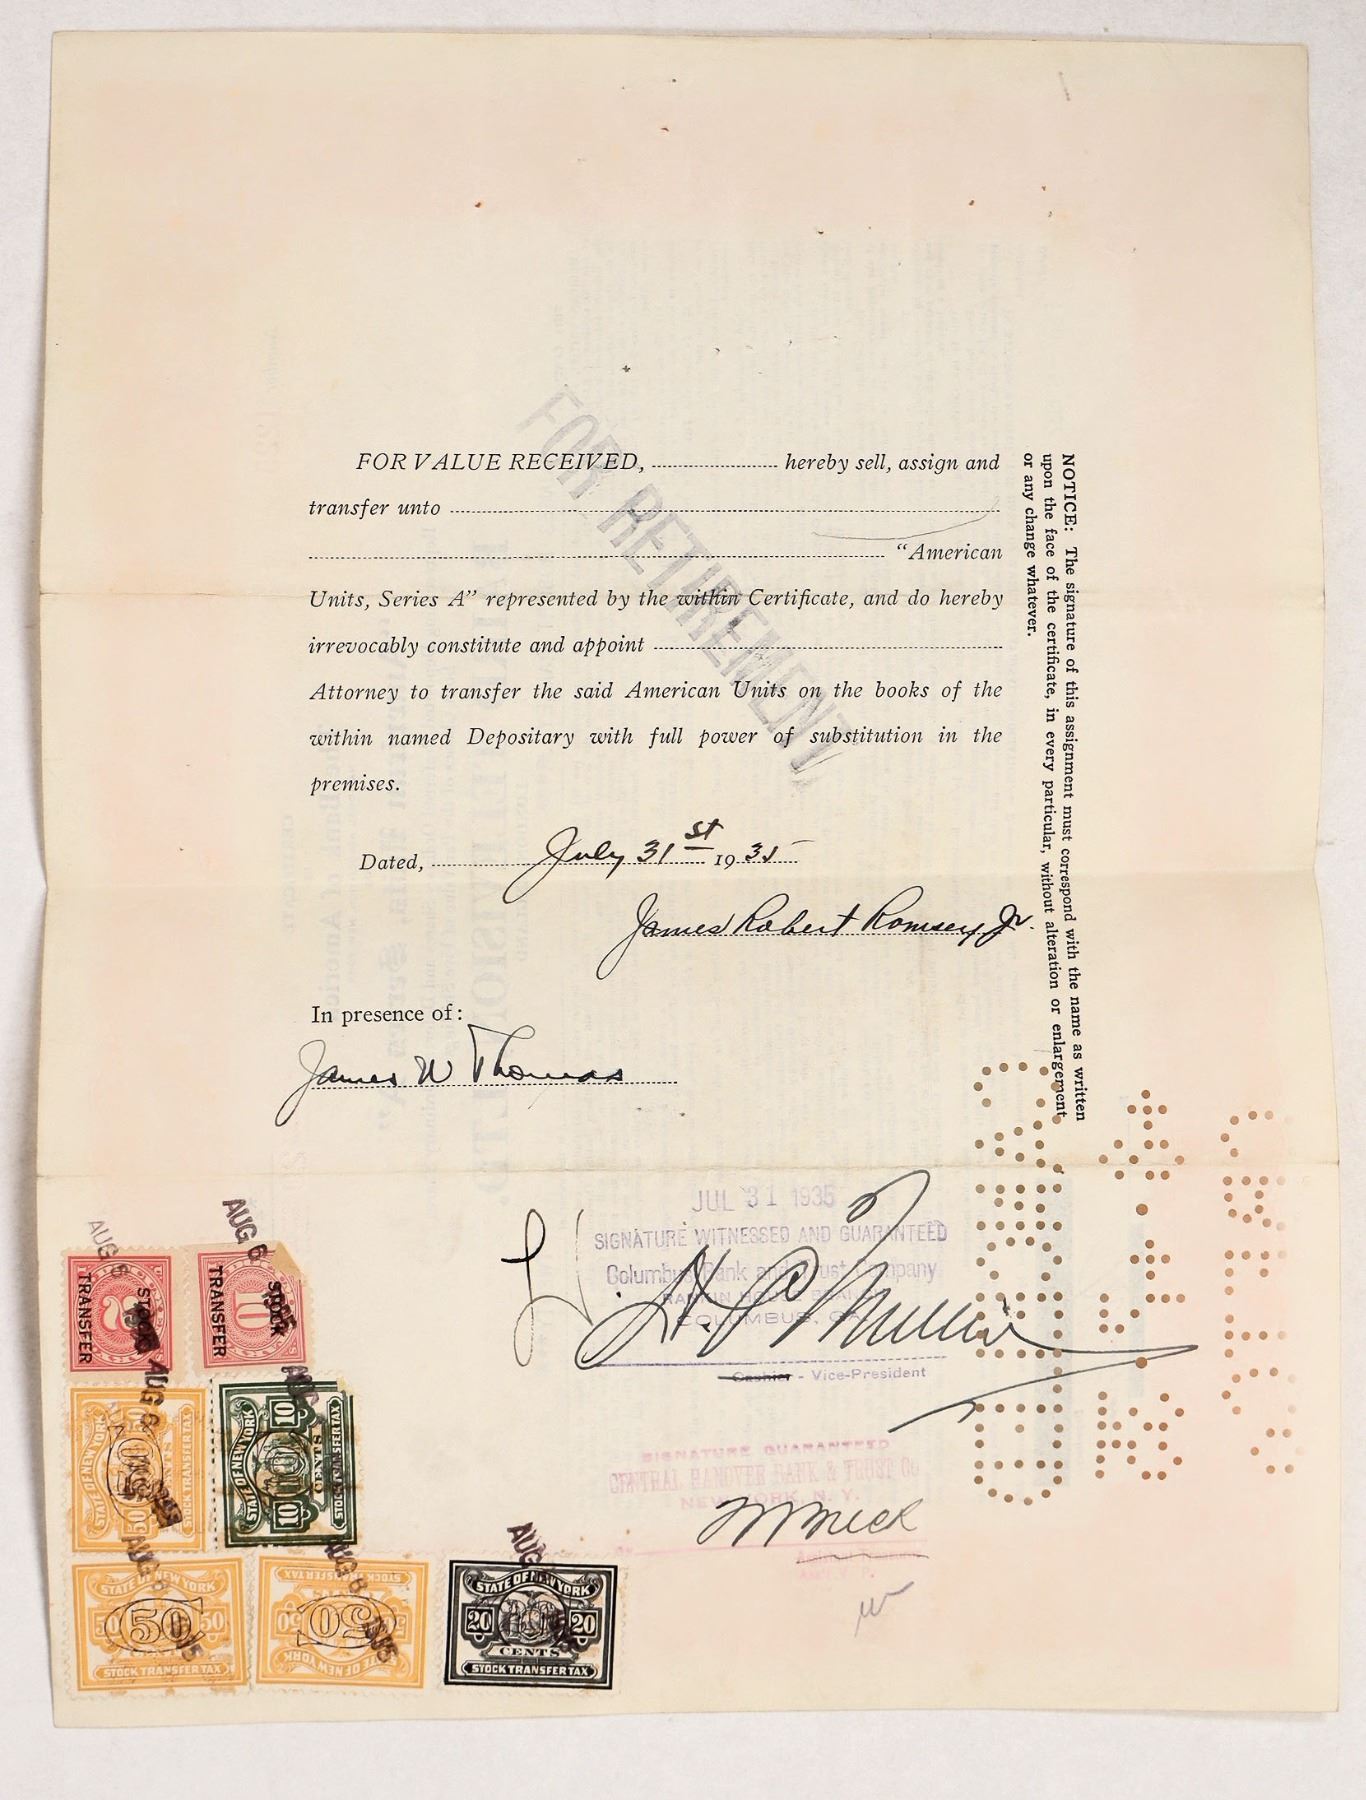 FOR VALUE RECEIVED, hereby sell, assign and
transfer unto
"American
Units, Series A" represented by the within Certificate, and do hereby
irrevocably constitute and appoint
Attorney to transfer the said American Units on the books of the
within named Depositary with full power of substitution in the
premises.
FOR RETIREMENT
Dated, July 31st 1935
James Robert Romsey, Jr.
In presence of:
James W Thomas
NOTICE: The signature of this assignment must correspond with the name as written
upon the face of the certificate, in every particular, without alteration or enlargement
or any change whatever.
JUL 31 1935
SIGNATURE WITNESSED AND GUARANTEED
Columbus Bank and Trust Company
COLUMBUS, GA.
Cashier - Vice-President
SIGNATURE GUARANTEED
CENTRAL HANOVER BANK & TRUST CO
NEW YORK, N. Y.
Ass't V. P.
AUG 6
2
STOCK
TRANSFER
AUG 6
10
STOCK
TRANSFER
AUG 6
STATE OF NEW YORK
50 50 50
CENTS
STOCK TRANSFER TAX
AUG
STATE OF NEW YORK
10 10
CENTS
STOCK TRANSFER TAX
AUG 6
STATE OF NEW YORK
50 50 50
STOCK TRANSFER TAX
AUG 6 1935
STATE OF NEW YORK
50 50
STOCK TRANSFER TAX
AUG
STATE OF NEW YORK
20 20
CENTS
STOCK TRANSFER TAX